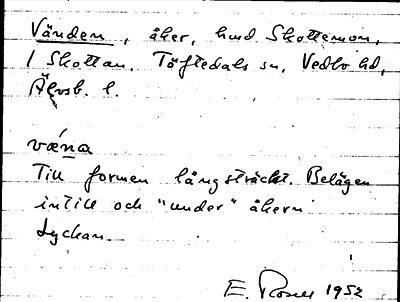 Vänden, åker, hmd Skottemon,
1 Skottan. Töftedals sn, Vedbo hd,
Älvsb. l.
væna
Till formen långsträckt. Belägen
intill och "under" åkern
Lyckan.
E. 1952